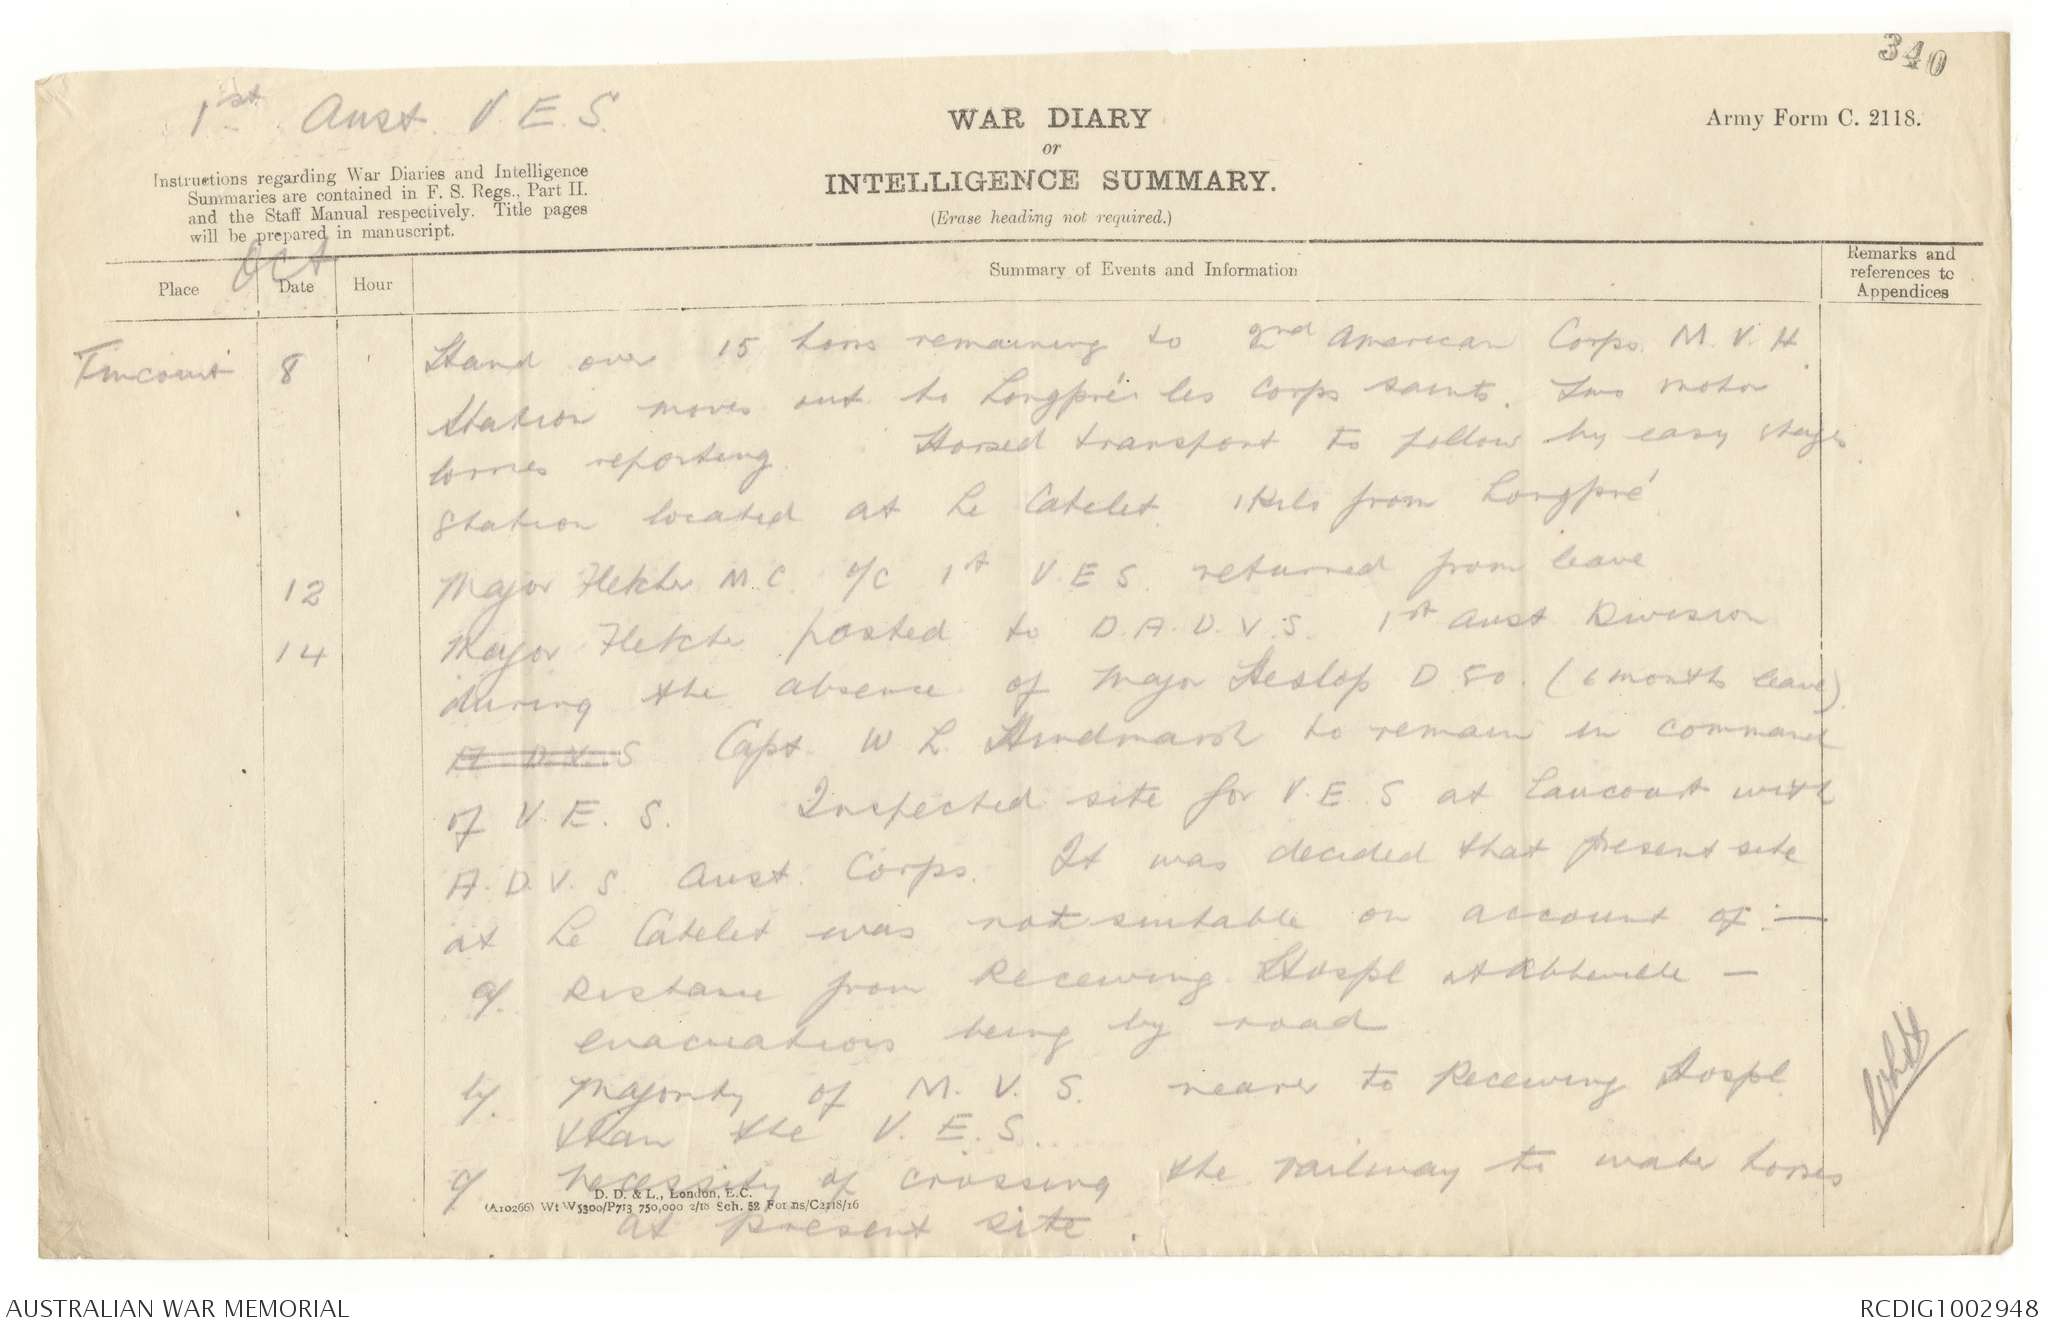 340
1st Aust. V. E. S.
WAR DIARY
or
INTELLIGENCE SUMMARY.
(Erase heading not required.)
Army Form C. 2118.
Instructions regarding War Diaries and Intelligence
Summaries are contained in F. S. Regs., Part II.
and the Staff Manual respectively. Title pages
will be prepared in manuscript.
Oct
Place
Date
Hour
Summary of Events and Information
Remarks and
references to
Appendices
Tincourt 8 Hand over 15 horses remaining to 2nd American Corps M. V. H.
Station moves out to Longpré les Corps saints. Two motor
lorries reporting. Horsed transport to follow by easy stages.
Station located at Le Catelet 1 Kilo from Longpré
12 Major Fletcher M.C. o/c 1st V. E S. returned from leave
14 Major Fletcher posted to D. A. D. V. S. 1st Aust Division
during the absence of Major Heslop D S O. (6 months leave)
A D.V.S Capt. W L. Hindmarsh to remain in command
of V. E. S. Inspected site for V. E. S at with
A. D. V. S. Aust. Corps. It was decided that present site
at Le Catelet was not suitable on account of :—
a/. Distance from Receiving Hospl at Abbeville —
evacuations being by road
b/. Majority of M. V. S. nearer to Receiving Hospl.
than the V. E. S.
c/ Necessity of crossing the railway to water horses
at present site.
D. D. & L., London, E.C.
(A10266) Wt W5300/P713 750,000 2/18 Sch. 52 Forms/C2118/16
AUSTRALIAN WAR MEMORIAL
RCDIG1002948